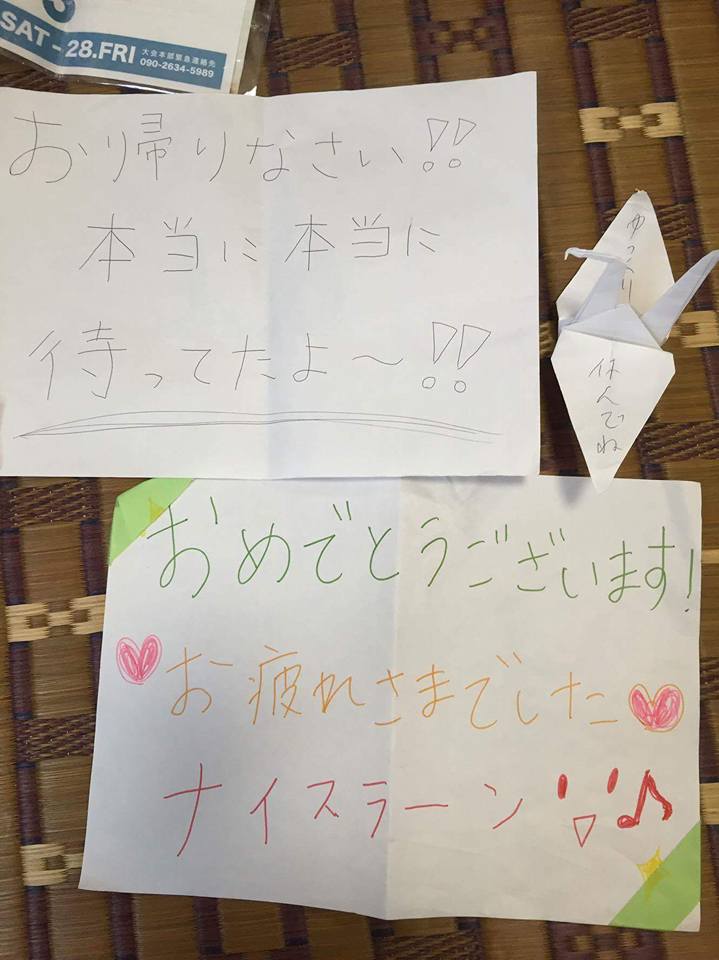 SAT - 28.FRI
大会本部緊急連絡先
090-2634-5989
お帰りなさい!!
本当に本当に
待ってたよ～!!
ゆっくり
休んでね
おめでとうございます!
お疲れさまでした
ナイスラーン!!♪